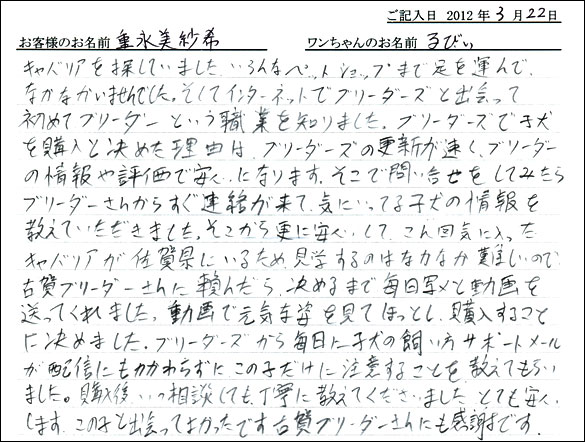 ご記入日 2012年3月22日
お客様のお名前 重永美紗希 ワンちゃんのお名前 るびぃ
キャバリアを探していました。いろんなペットショップまで足を運んで、
なかなかいませんでした。そしてインターネットでブリーダーズと出会って
初めてブリーダーという職業を知りました。ブリーダーズで子犬
を購入と決めた理由は、ブリーダーズの更新が速く、ブリーダー
の情報や評価で安心になります。そこで問い合せをしてみたら
ブリーダーさんからすぐ連絡が来て、気にいってる子犬の情報を
教えていただきました。そこから更に安心して、こん回気に入った
キャバリアが佐賀県にいるため、見学するのはなかなか難しいので
古賀ブリーダーさんに頼んだら、決めるまで毎日写メと動画を
送ってくれました。動画で元気な姿を見てほっとし、購入すること
に決めました。ブリーダーズから毎日に子犬の飼い方サポートメール
が配信にもかかわらずに この子だけに注意することを教えてもらい
ました。購入後、いつ相談しても丁寧に教えてくださいました とても安心
します。この子と出会ってよかったです 古賀ブリーダーさんにも感謝です。